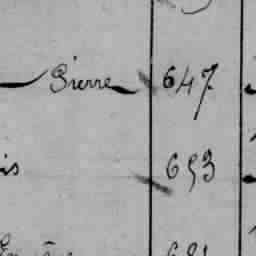 Pierre 647
is 653